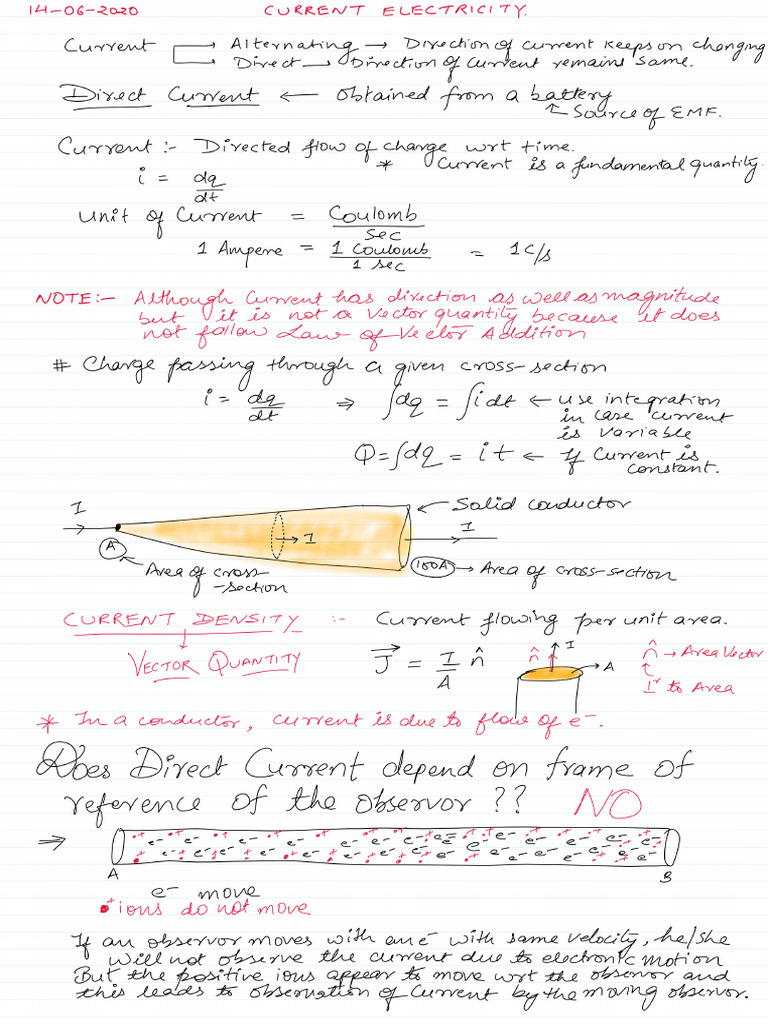 14-06-2020 CURRENT ELECTRICITY.
Current → Alternating → Direction of current keeps on changing
→ Direct → Direction of current remains same.
Direct Current ← obtained from a battery
↖ Source of EMF.
Current :- Directed flow of charge wrt time.
* Current is a fundamental quantity.
i = dq/dt
Unit of Current = Coulomb/sec
1 Ampere = 1 Coulomb/1 sec = 1 C/s
NOTE:- Although Current has direction as well as magnitude
but it is not a Vector quantity because it does
not follow Law of Vector Addition
# Charge passing through a given cross-section
i = dq/dt ⇒ ∫dq = ∫idt ← use integration
in case current
is variable
Q = ∫dq = it ← If Current is
constant.
I
← Solid conductor
I
→ I
A
100A → Area of cross-section
Area of cross-
-section
CURRENT DENSITY :- Current flowing per unit area.
VECTOR QUANTITY
J⃗ = I/A n̂
n̂ I
A
n̂ → Area Vector
⊥r to Area
* In a conductor, current is due to flow of e⁻.
Does Direct Current depend on frame of
reference of the observor ?? NO
⇒
A B
e⁻ move
+ ions do not move
If an observor moves with an e⁻ with same velocity, he/she
will not observe the current due to electronic motion
But the positive ions appear to move wrt the observor and
this leads to observation of current by the moving observor.